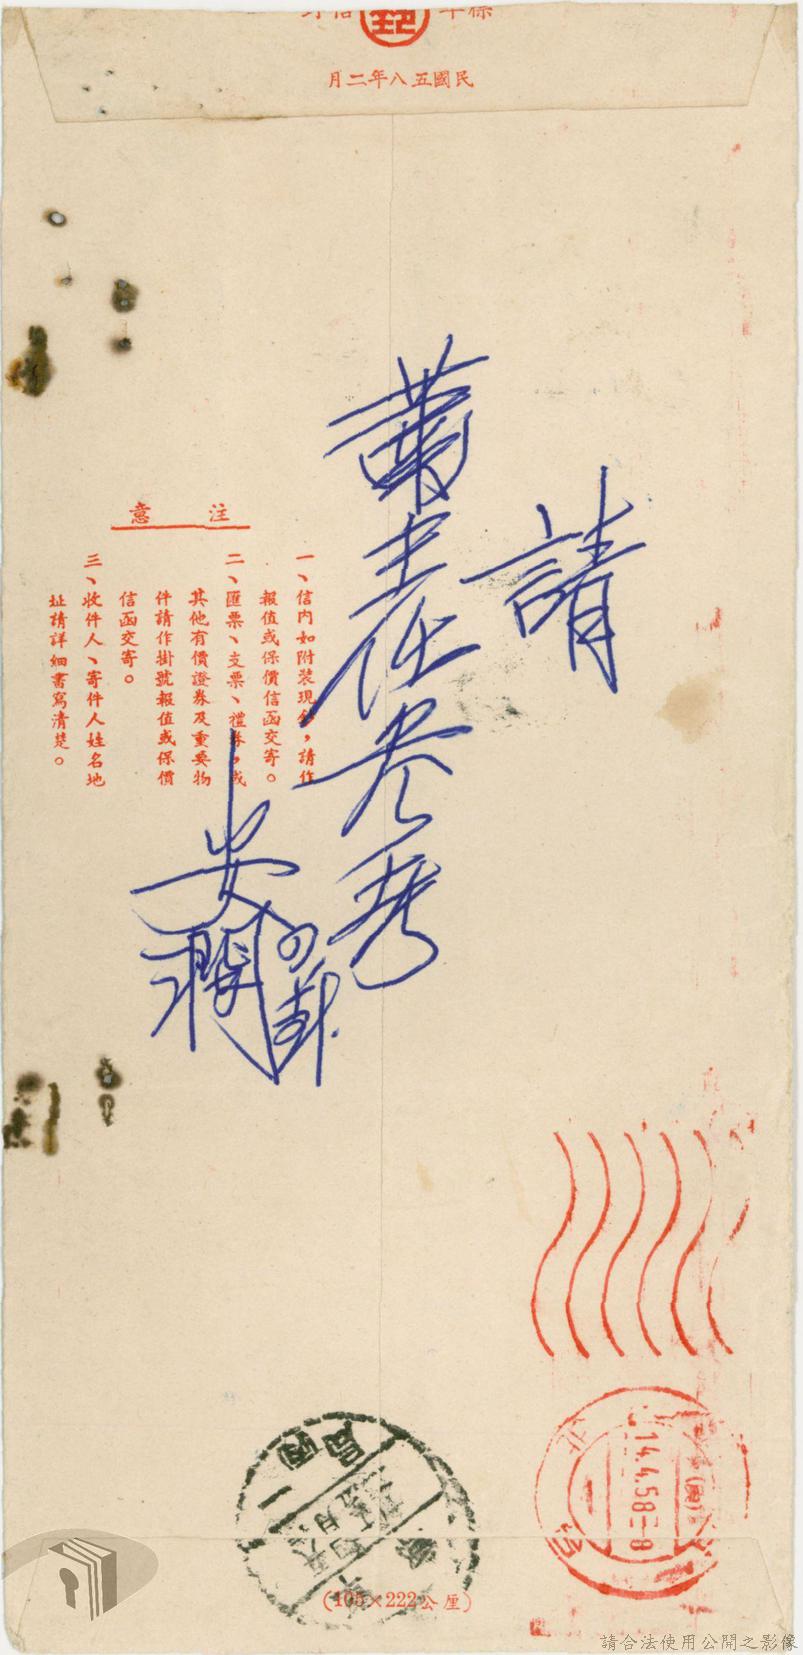 標準信封
郵
民國五八年二月
請
蕭主任參考
安瀾
注意
一、信內如附裝現鈔，請作
報值或保價信函交寄。
二、匯票、支票、禮券，或
其他有價證券及重要物
件請作掛號報值或保價
信函交寄。
三、收件人、寄件人姓名地
址請詳細書寫清楚。
14.4.58
8
(105×222公厘)
請合法使用公開之影像